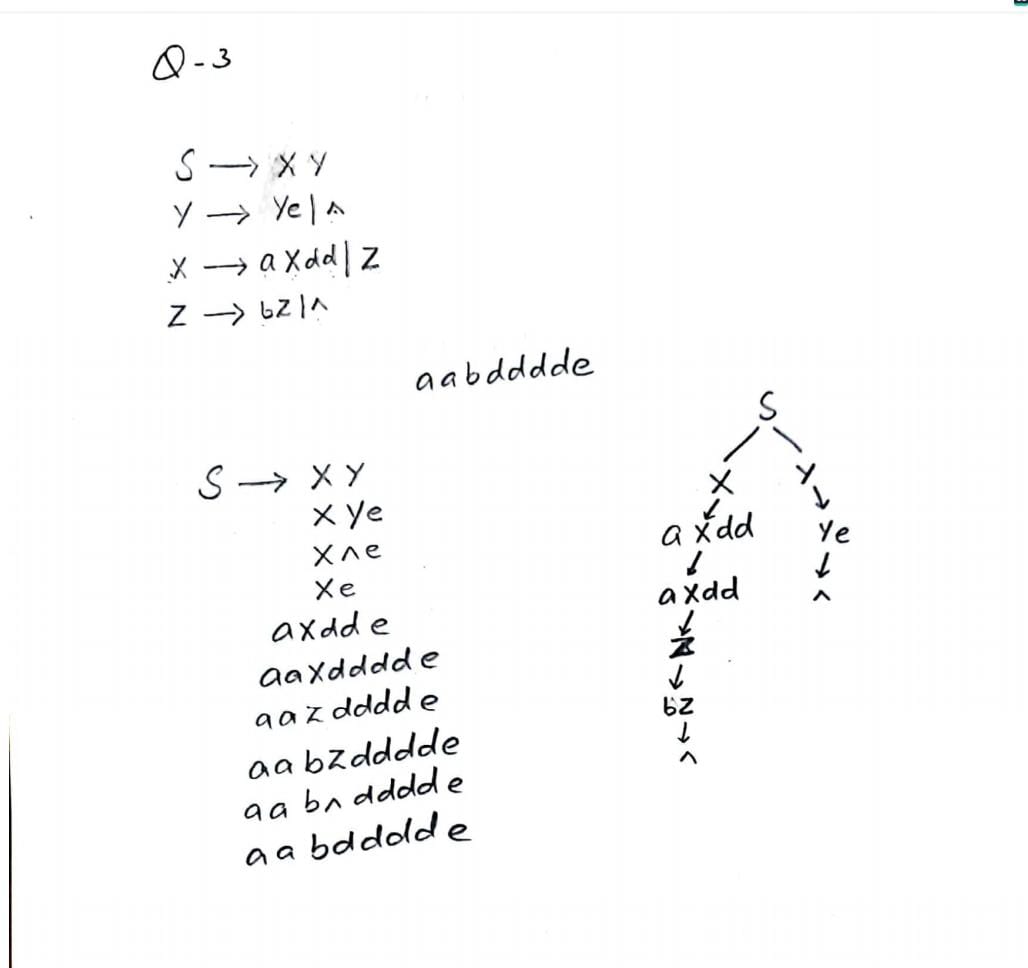 Q-3
S → X Y
Y → Ye|^
X → aXdd|Z
Z → bZ|^
aabdddde
S → X Y
X Ye
X^e
Xe
aXdde
aaXdddde
aaZdddde
aabZdddde
aab^dddde
aabdddde
S
X Y
aXdd Ye
aXdd ^
Z
bZ
^